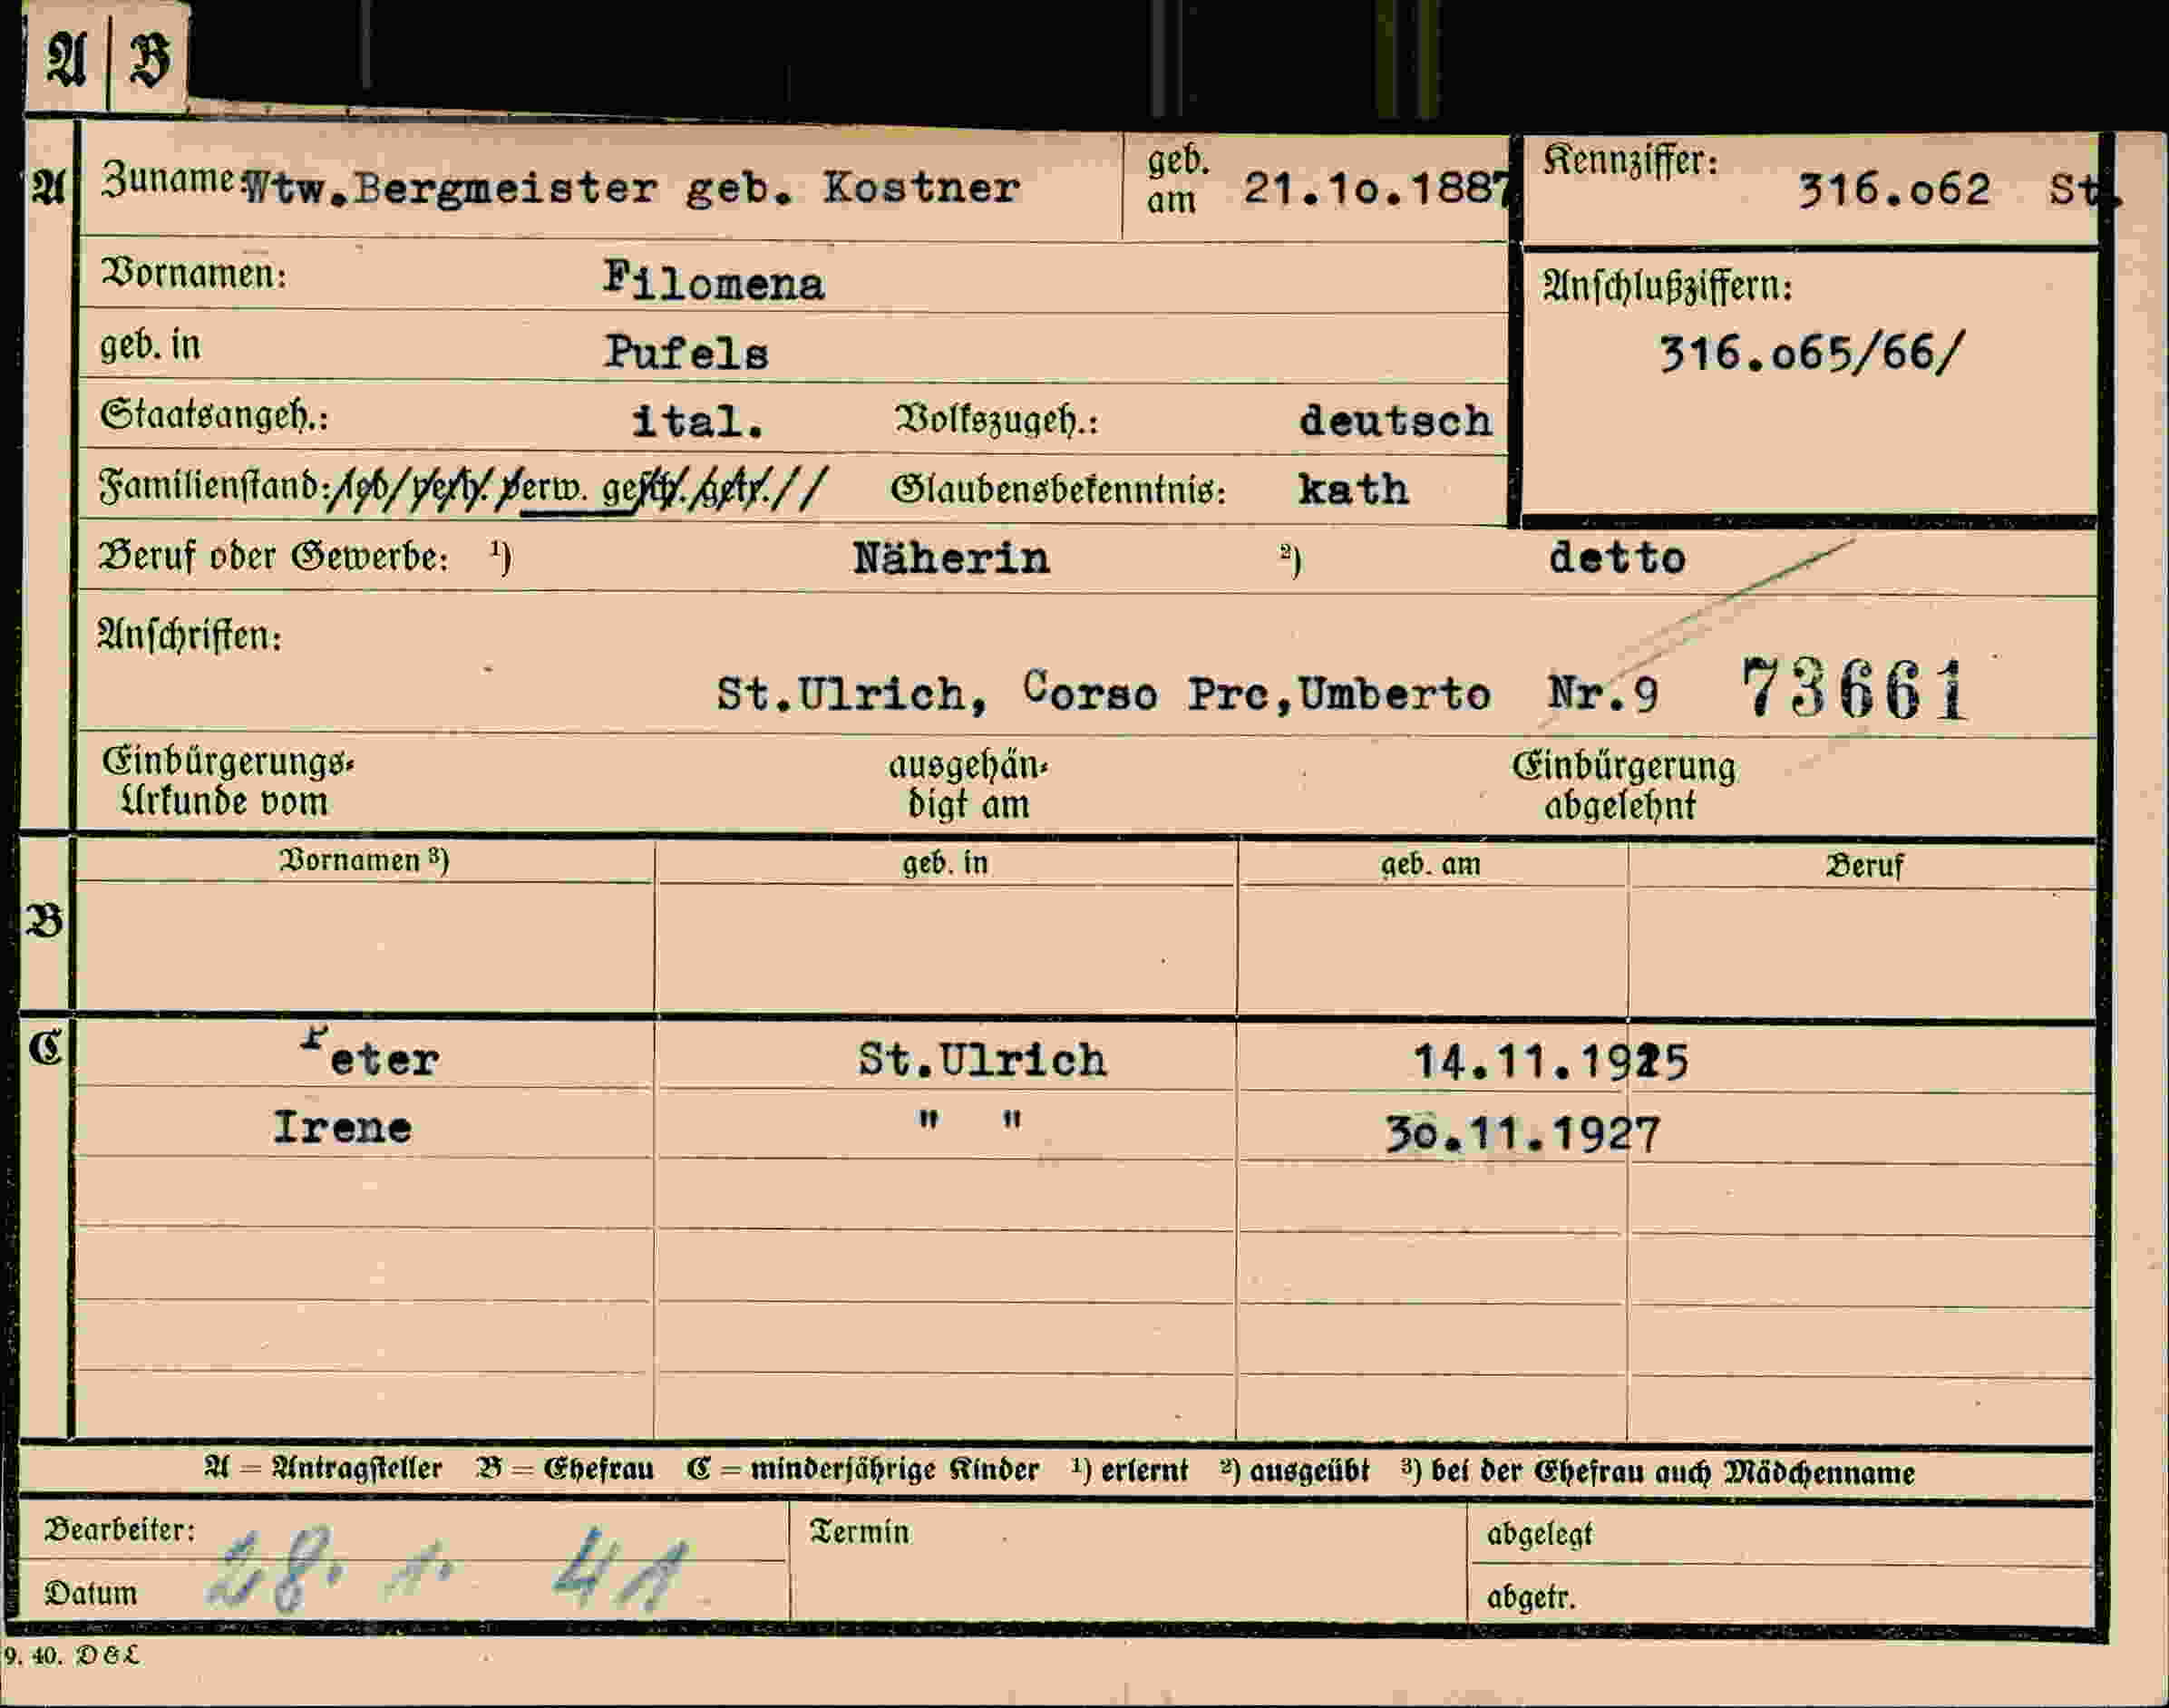 A | B
A Zuname: Wtw.Bergmeister geb. Kostner geb. am 21.1o.1887 Kennziffer: 316.o62 St.
Vornamen: Filomena Anschlußziffern:
geb. in Pufels 316.o65/66/
Staatsangeh.: ital. Volkszugeh.: deutsch
Familienstand: led. verh. verw. gesch. getr. Glaubensbekenntnis: kath
Beruf oder Gewerbe: ¹) Näherin ²) detto
Anschriften:
St.Ulrich, Corso Prc,Umberto Nr.9 73661
Einbürgerungs- ausgehän- Einbürgerung
Urkunde vom digt am abgelehnt
Vornamen ³) geb. in geb. am Beruf
B
C Peter St.Ulrich 14.11.1925
Irene " " 3o.11.1927
A = Antragsteller B = Ehefrau C = minderjährige Kinder ¹) erlernt ²) ausgeübt ³) bei der Ehefrau auch Mädchenname
Bearbeiter: Termin abgelegt
Datum 28. 1. 41 abgetr.
9. 40. D&L